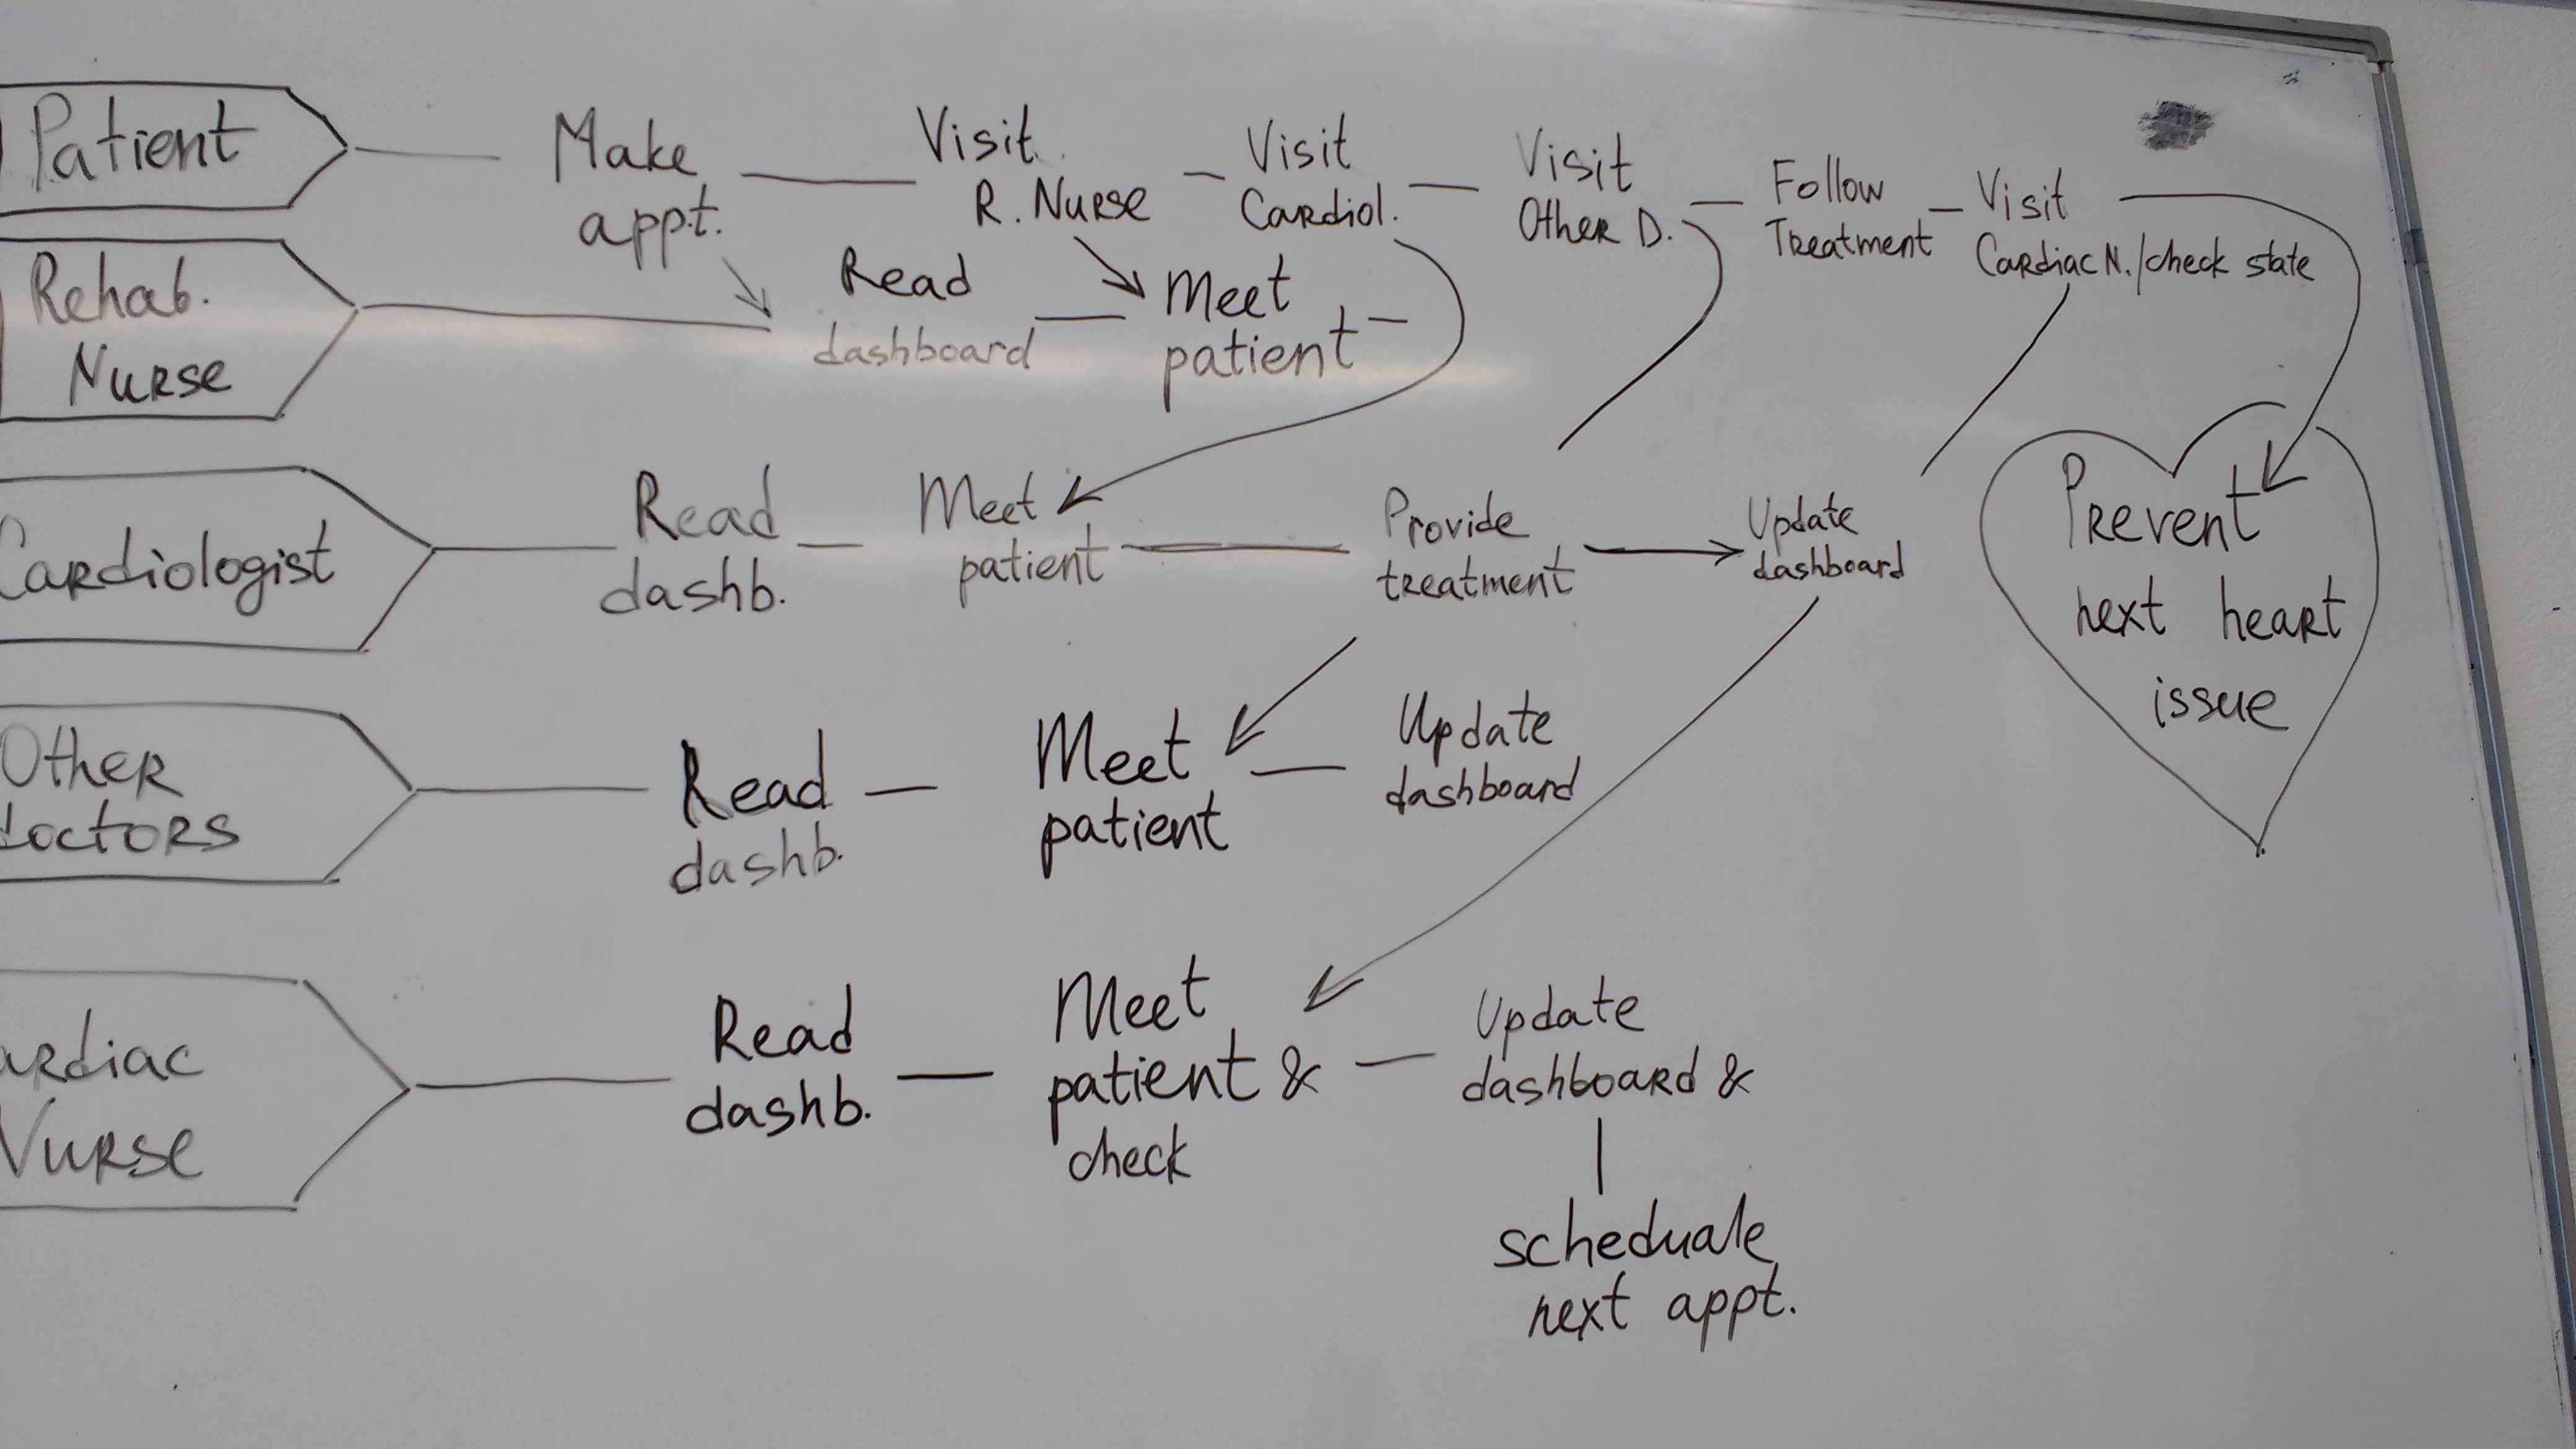 Patient
Make
appt.
Visit
R. Nurse
Visit
Cardiol.
Visit
Other D.
Follow
Treatment
Visit
Cardiac N./check state
Rehab.
Nurse
Read
dashboard
Meet
patient
Cardiologist
Read
dashb.
Meet
patient
Provide
treatment
Update
dashboard
Prevent
next heart
issue
Other
doctors
Read
dashb.
Meet
patient
Update
dashboard
ardiac
Nurse
Read
dashb.
Meet
patient &
check
Update
dashboard &
scheduale
next appt.